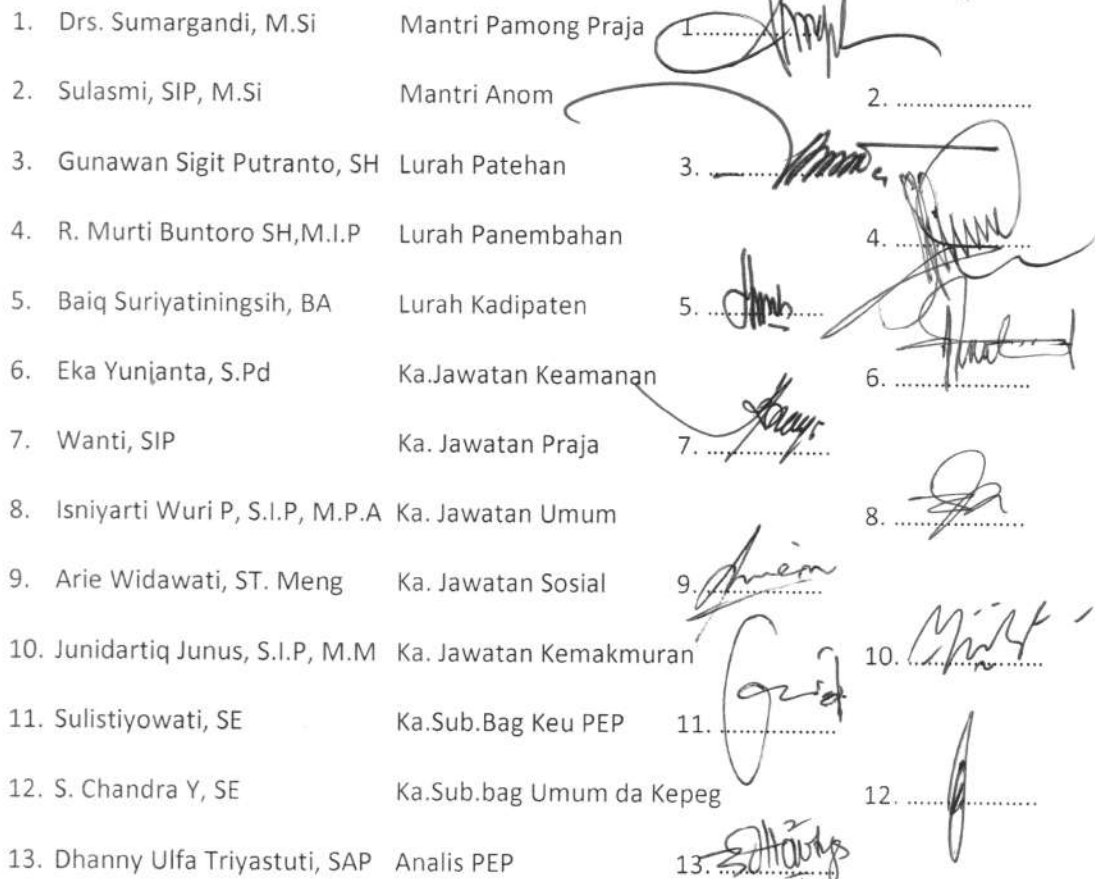 1. Drs. Sumargandi, M.Si Mantri Pamong Praja 1..............
2. Sulasmi, SIP, M.Si Mantri Anom 2. ......................
3. Gunawan Sigit Putranto, SH Lurah Patehan 3. ..............
4. R. Murti Buntoro SH,M.I.P Lurah Panembahan 4. ......................
5. Baiq Suriyatiningsih, BA Lurah Kadipaten 5. ...................
6. Eka Yunianta, S.Pd Ka.Jawatan Keamanan 6. ......................
7. Wanti, SIP Ka. Jawatan Praja 7. ....................
8. Isniyarti Wuri P, S.I.P, M.P.A Ka. Jawatan Umum 8. ......................
9. Arie Widawati, ST. Meng Ka. Jawatan Sosial 9. ....................
10. Junidartiq Junus, S.I.P, M.M Ka. Jawatan Kemakmuran 10. ......................
11. Sulistiyowati, SE Ka.Sub.Bag Keu PEP 11. ...................
12. S. Chandra Y, SE Ka.Sub.bag Umum da Kepeg 12. ......................
13. Dhanny Ulfa Triyastuti, SAP Analis PEP 13. ...................